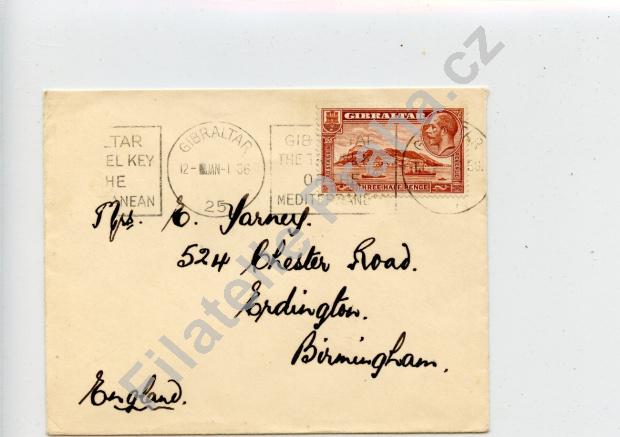 GIBRALTAR
THREE HALF PENCE
LTAR
EL KEY
HE
ANEAN
GIBRALTAR
12-
JAN-1 36
25
GIB
AL
THE T
O
MEDITERRANE
Mrs. E. Yarney.
524 Chester Road.
Erdington.
Birmingham.
England.
Filatelie Praha.cz